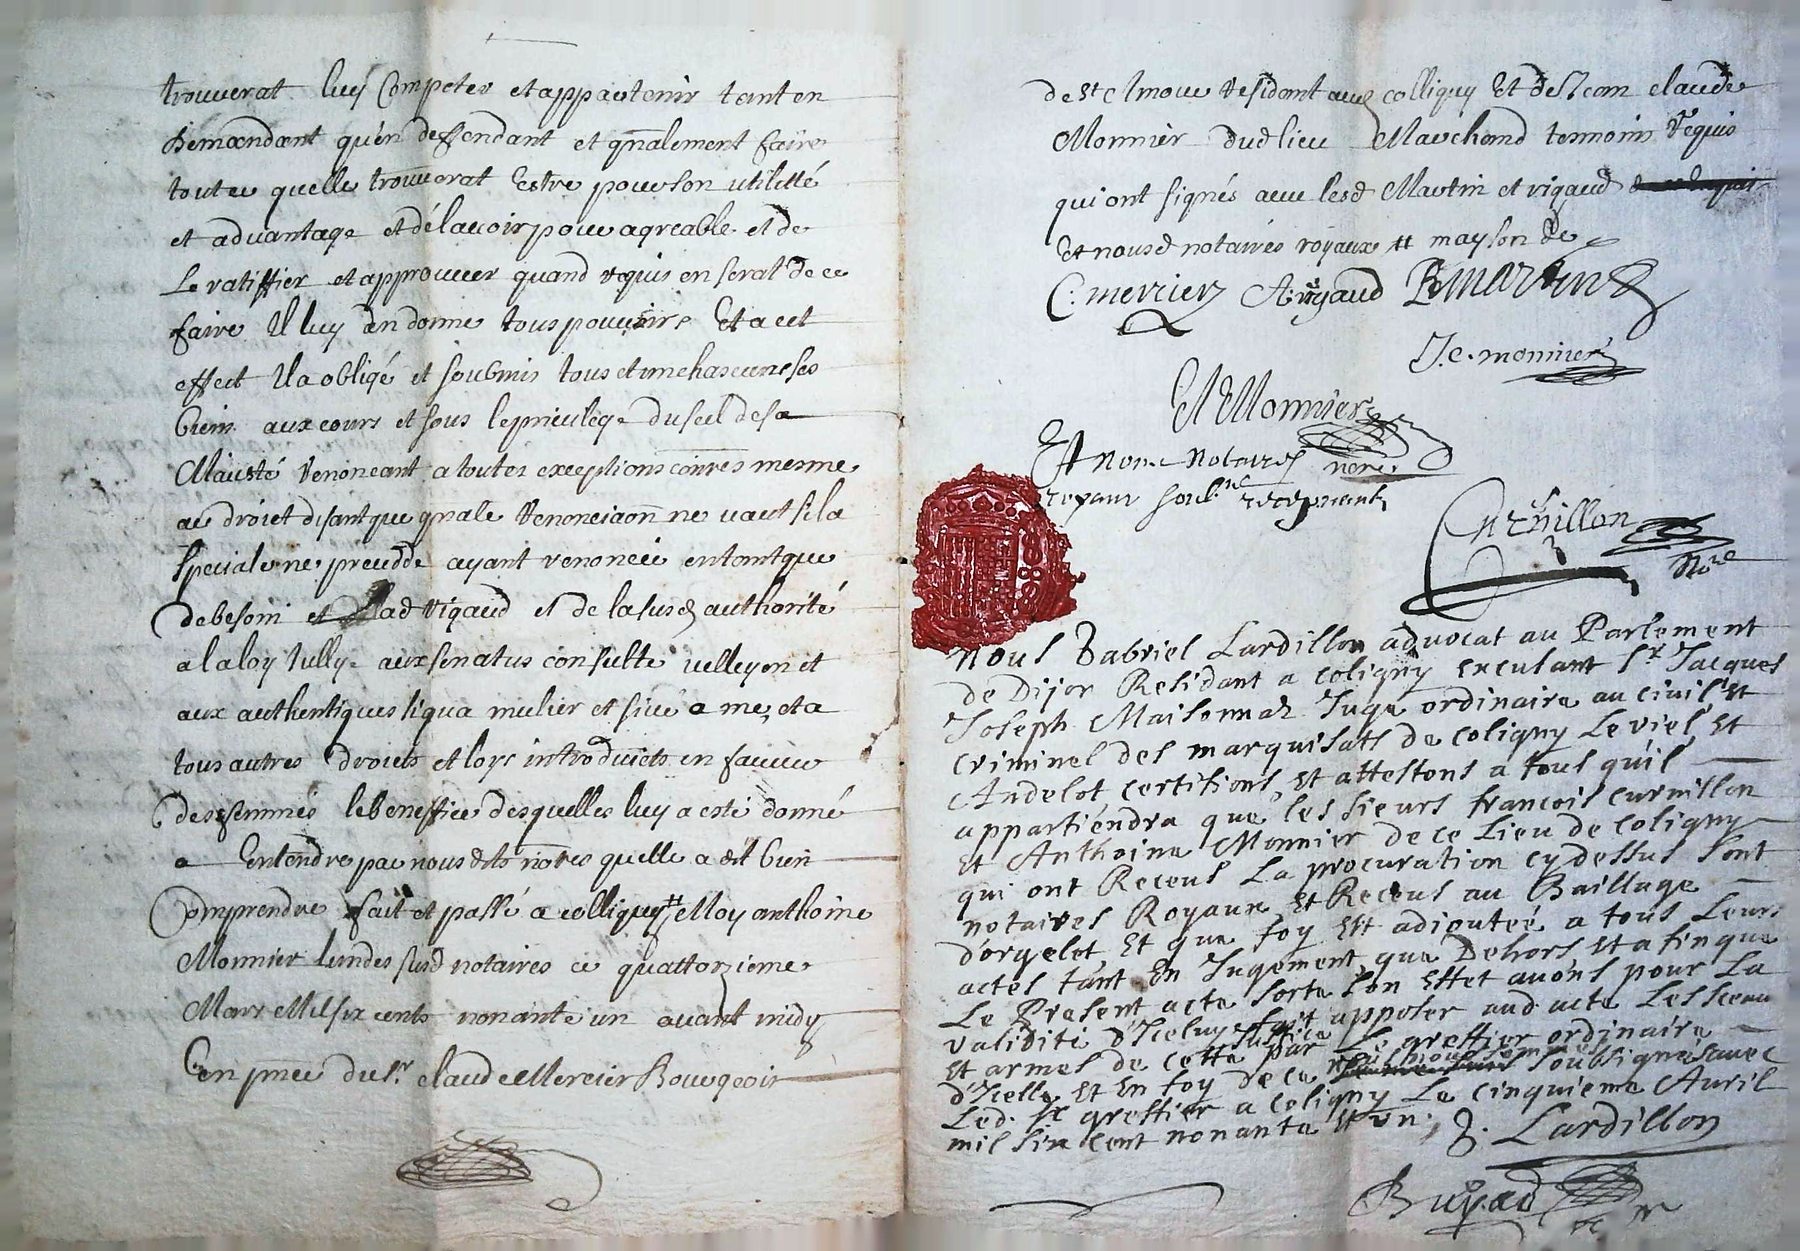 trouverat luy Competer et appartenir tant en
demandant qu'en deffendant et gñalement faire
toutce quelle trouverat Estre pour son utilitté
et aduantage et de lauoir pour agreable et de
Le ratiffier et approuuer quand requis en serat de ce
faire Il luy en donne tous pouuoirs Et a cet
effect Il a obligé et soubmis tous et un chascun ses
biens aux cours et sous le priuilege du seel de sa
Maiesté renonceant a toutes exceptions conñres mesme
au droict disant que gñale renonciaoñ ne uaut si la
speciale ne precedde ayant renoncée entant que
de besoin et lad vigaud et de la susd authorité
a la loy Iully aux senatus consulte uelleyen et
aux authentiques si qua mulier et siue a me, et a
tous autres droicts et loys introduicts en faueur
des femmes le beneffice desquelles luy a esté donné
a Entendre par nous dits nores quelle a dit bien
Comprendre fait et passé a colligny tt elloy anthoine
Monnier lundes susd notaires ce quattorzieme
Mars Mil six cents nonante un auant midy
En pnce du sr. claude Mercier Bourgeois
de st c lmour residant aud colligny Et de Jean claude
Monnier dud lieu Marchand tesmoins requis
qui ont signés auec lesd Martin et vigaud
Et nousd notaires royaux tt mayson de
C. mercier A. vigaud B martin
J. c. monnier
A Monnier
Et nore Notaires nore
royaux soub.ne recepuant
Curuillon
Nore
Nous Gabriel Lardillon advocat au Parlement
de Dijon Residant a coligny exculant Sr Jacques
Joseph Maisonnaz Juge ordinaire au ciuil Et
criminel des marquisats de coligny Le viel, Et
Andelot certifions, Et attestons a tous qu'il
appartiéndra que les sieurs francois curuillon
Et Anthoine Monnier de ce Lieu de coligny
qui ont Receus La procuration cy dessus sont
notaires Royaux Et Receus au Bailliage
d'orgelet, Et que foy Est adioutée a tous Leurs
actes tant En Jugement que Dehors, Et a fin que
Le Present acte sorte son Effet auons pour La
validité d'Iceluy fait apposer aud acte Les sceau
Et armes de cette Justice par Le greffier ordinaire
d'Icelle, Et En foy de ce nous nous sommes soubsignés auec
Led. sr greffier a coligny Le cinquieme Auril
mil six cent nonante Et un, G. Lardillon
Buyad